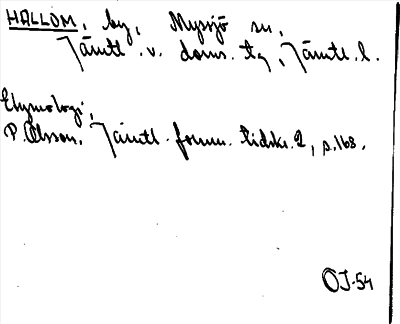 HALLOM, by, Myssjö sn,
Jämtl. v. doms. tg, Jämtl. l.
Etymologi,
P. Olsson, Jämtl. fornm. tidskr. 2, s. 163.
OJ-54